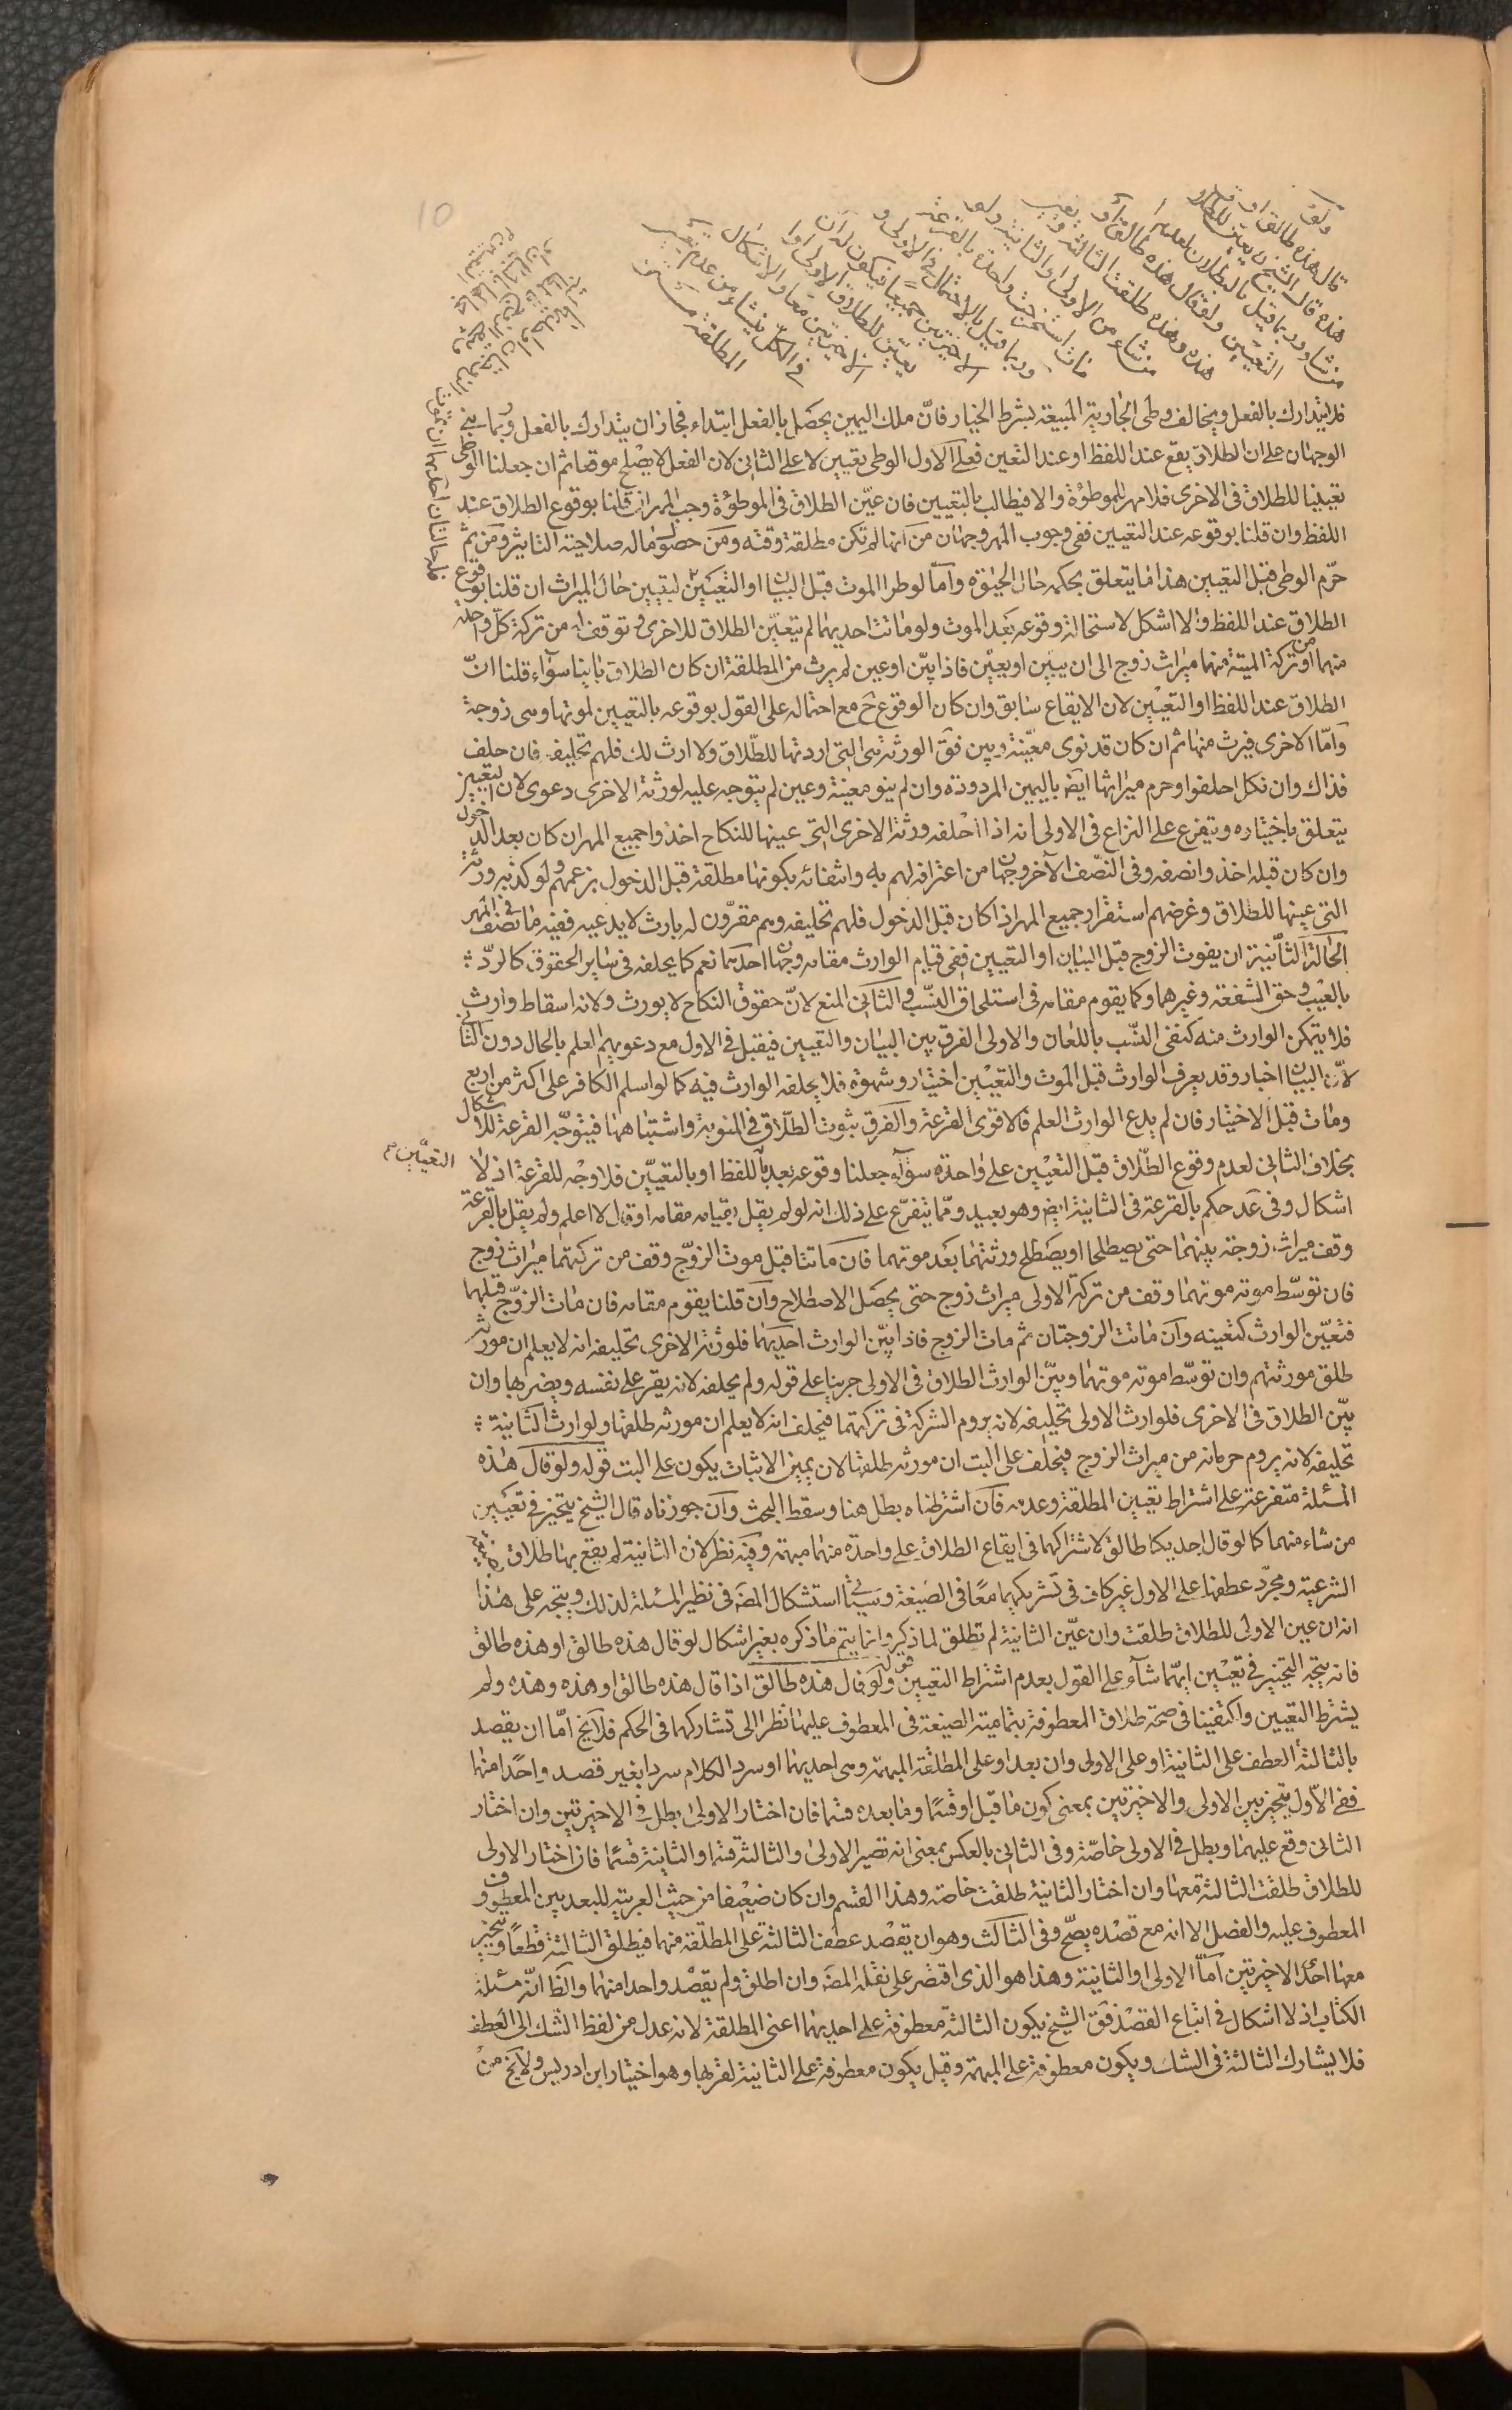 ولو
قال هذه طالق او
هذه قال الشيخ يعين للطلاق
من شاء وربما قيل بالبطلان لعدم
التعيين ولو قال هذه طالق او
هذه وهذه طلقت الثالثة ويعين
من شاء من الاولى او الثانية ولو
مات استخرجت واحدة بالقرعة
وربما قيل بالاحتمال في الاولى و
الاخيرتين جميعا فيكون له ان
يعين للطلاق الاولى او
الاخيرتين معا والاشكال
في الكل ينشاء من عدم تعيين
المطلقة
فلا يتدارك بالفعل ويخالف وطى الجارية المبيعة بشرط الخيار فانّ ملك اليمين يحصل بالفعل ابتداء فجاز ان يتدارك بالفعل وربما بنى
الوجهان على ان الطلاق يقع عند اللفظ او عند التعين فعلى الاول الوطى تعيين لا على الثانى لان الفعل لا يصلح موقعا ثم ان جعلنا الوطى
تعيينا للطلاق فى الاخرى فلا مهر للموطوئة والا فيطالب بالتعيين فان عيّن الطلاق فى الموطوئة وجب المهر ان قلنا بوقوع الطلاق عند
اللفظ وان قلنا بوقوعه عند التعيين ففى وجوب المهر وجهان من انها لم تكن مطلقة وقته ومن حصول ماله صلاحية التاثير ومن ثم
حرّم الوطى قبل التعيين هذا ما يتعلق بحكمه حال الحيوة وامّا لو طرا الموت قبل البيان او التعيين ليتبين حال الميراث ان قلنا بوقوع
الطلاق عند اللفظ والا اشكل لاستحالة وقوعه بعد الموت ولو ماتت احديهما لم يتعيّن الطلاق للاخرى وتوقف له من تركة كل واحدة
منهما او من تركة الميتة منهما ميراث زوج الى ان يبين او يعيّن فاذا بيّن او عين لم يرث من المطلقة ان كان الطلاق باينا سوآء قلنا انّ
الطلاق عند اللفظ او التعيين لان الايقاع سابق وان كان الوقوع ح مع احتماله على القول بوقوعه بالتعيين لموتها وهى زوجة
وامّا الاخرى فيرث منها ثم ان كان قد نوى معيّنة وبين فقَ الورثة هى التى اردتها للطّلاق ولا ارث لك فلهم تحليفه فان حلف
فذاك وان نكل احلفوا وحرم ميراثها ايض باليمين المردودة وان لم ينو معينة وعين لم يتوجه عليه لورثة الاخرى دعوى لان التعيين
يتعلق باختياره ويتفرع على النزاع فى الاولى انه اذا احلفه ورثة الاخرى التى عينها للنكاح اخذوا جميع المهر ان كان بعد الدخول
وان كان قبله اخذوا نصفه وفى النّصف الآخر وجهان من اعترافه لهم به وانتفائه بكونها مطلقة قبل الدخول بزعمهم ولو كذبه ورثة
التى عينها للطلاق وغرضهم استقرار جميع المهر اذا كان قبل الدخول فلهم تحليفه وهم مقرّون له بارث لا يدعيه ففيه ما فى نصف المهر
الحالة الثّانية ان يفوت الزوج قبل البيان او التعيين ففى قيام الوارث مقامه وجهان احدهما نعم كما يخلفه فى ساير الحقوق كالردّ
بالعيب وحق الشفعة وغيرهما وكما يقوم مقامه فى استلحاق النسب والثانى المنع لانّ حقوق النكاح لا يورث ولانه اسقاط وارث
فلا يتمكن الوارث منه كنفى النسب باللعان والاولى الفرق بين البيان والتعيين فيقبل فى الاول مع دعويهم العلم بالحال دون الثانى
لانّ البيان اخبار وقد يعرف الوارث قبل الموت والتعيين اختيار وشهوة فلا يخلفه الوارث فيه كما لو اسلم الكافر على اكثر من اربع
ومات قبل الاختيار فان لم يدع الوارث العلم فالاقوى القرعة والفرق ثبوت الطلاق فى المنوية واشتباهها فيتوجّه القرعة للاشكال
بخلاف الثانى لعدم وقوع الطّلاق قبل التعيين على واحدة سوآء جعلنا وقوعه بعد باللفظ او بالتعيين فلا وجه للقرعة اذ لا
التعيين م
اشكال وفى عَد حكم بالقرعة فى الثانية ايض وهو بعيد وممّا يتفرّع على ذلك انه لو لم يقل بقيامه مقامه او قال لا اعلم ولم يقل بالقرعة
وقف ميراث زوجة بينهما حتى يصطلحا او يصطلح ورثتهما بعد موتهما فان ماتتا قبل موت الزوّج وقف من تركتهما ميراث زوج
فان توسّط موته موتهما وقف من تركة الاولى ميراث زوج حتى يحصل الاصطلاح وان قلنا يقوم مقامه فان مات الزوّج قبلهما
فتعيّن الوارث كتعينه وان ماتت الزوجتان ثم مات الزوج فاذا بيّن الوارث احديهما فلورثة الاخرى تحليفه انه لا يعلم ان مورثه
طلق مورثتهم وان توسّط موته موتهما وبيّن الوارث الطلاق فى الاولى جرينا على قوله ولم يحلفه لانه يقر على نفسه ويضر بها وان
بيّن الطلاق فى الاخرى فلوارث الاولى تحليفه لانه يروم الشركة فى تركتهما فيحلف انه لا يعلم ان مورثه طلقها ولوارث الثانية
تحليفه لانه يروم حرمانه من ميراث الزوج فيحلف على البت ان مورثه طلقها لان يمين الاثبات يكون على البت قوله ولو قال هذه
المسئلة متفرعة على اشتراط تعيين المطلقة وعدمه فان اشترطناه بطل هنا وسقط البحث وان جوزناه قال الشيخ يتخير فى تعيين
من شاء منهما كما لو قال احديكما طالق لاشتراكهما فى ايقاع الطلاق على واحدة منهما مبهمة وفيه نظر لان الثانية لم يقع بها طلاق
الشرعية ومجرّد عطفها على الاول غير كاف فى تشريكهما معًا فى الصّيغة وسياتى استشكال المصَ فى نظير المسئلة لذلك ويتجه على هذا
انه ان عين الاولى للطلاق طلقت وان عيّن الثانية لم تطلق لما ذكر وانما يتم ما ذكره بغير اشكال لو قال هذه طالق او هذه طالق
فانه يتجه التخيير فى تعيين ايّهما شآء على القول بعدم اشتراط التعيين قوله ولو قال هذه طالق اذا قال هذه طالق او هذه وهذه ولم
يشترط التعيين واكتفينا فى صحة طلاق المعطوفة بتمامية الصيغة فى المعطوف عليها نظرا الى تشاركهما فى الحكم فلا يخ امّا ان يقصد
بالثالثة العطف على الثانية او على الاولى وان بعد او على المطلقة المبهمة وهى احديهما او سرد الكلام سردا بغير قصد واحدا منها
ففى الاول يتخير بين الاولى والاخيرتين بمعنى كون ما قبل او قسما وما بعده قسما فان اختار الاولى بطل فى الاخيرتين وان اختار
الثانى وقع عليهما وبطل فى الاولى خاصّة وفى الثانى بالعكس بمعنى انه تصير الاولى والثالثة قسما والثانية قسما فان اختار الاولى
للطلاق طلقت الثالثة معها وان اختار الثانية طلقت خاصة وهذا القسم وان كان ضعيفا من حيث العربية للبعد بين المعطوف و
المعطوف عليه والفصل الا انه مع قصده يصحّ وفى الثالث وهو ان يقصد عطف الثالثة على المطلقة منهما فيطلق الثالثة قطعا ويتخير
معها احد الاخيرتين امّا الاولى او الثانية وهذا هو الذى اقتصر على نقله المصَ وان اطلق ولم يقصد واحدا منهما والظَ انّه مسئلة
الكتاب اذ لا اشكال فى اتباع القصد فقَ الشيخ يكون الثالثة معطوفة على احديهما اعنى المطلقة لانه عدل من لفظ الشك الى العطف
فلا يشارك الثالثة فى الشك ويكون معطوفة على المبهمة وقيل يكون معطوفة على الثانية لقربها وهو اختيار ابن ادريس ولا يخ من